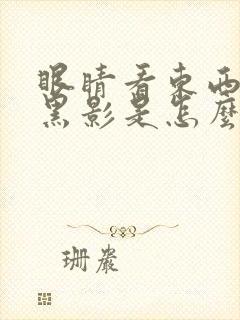 眼睛看東西
黑影是怎麼
珊嚴